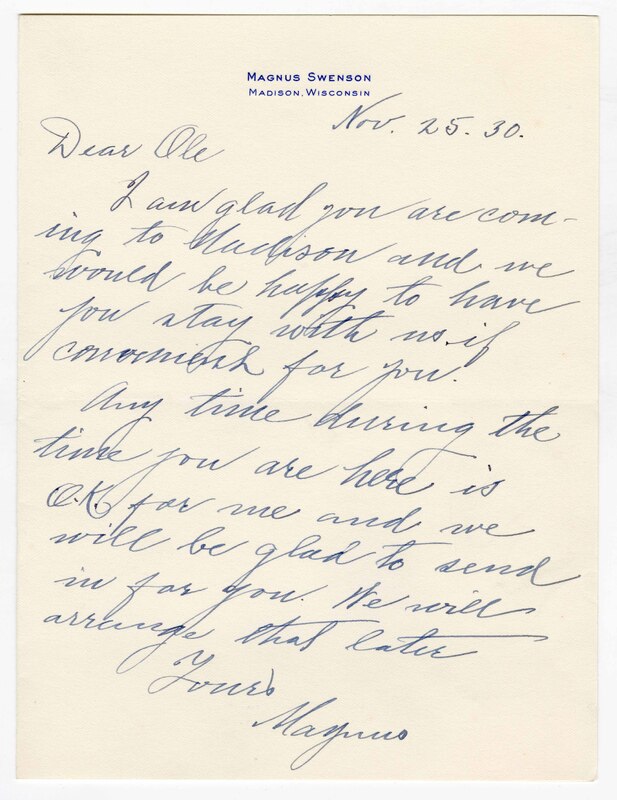 MAGNUS SWENSON
MADISON, WISCONSIN
Nov. 25. 30.
Dear Ole
I am glad you are com-
ing to Madison and we
would be happy to have
you stay with us if
convenient for you.
Any time during the
time you are here is
O.K. for me and we
will be glad to send
in for you. We will
arrange that later
Yours
Magnus